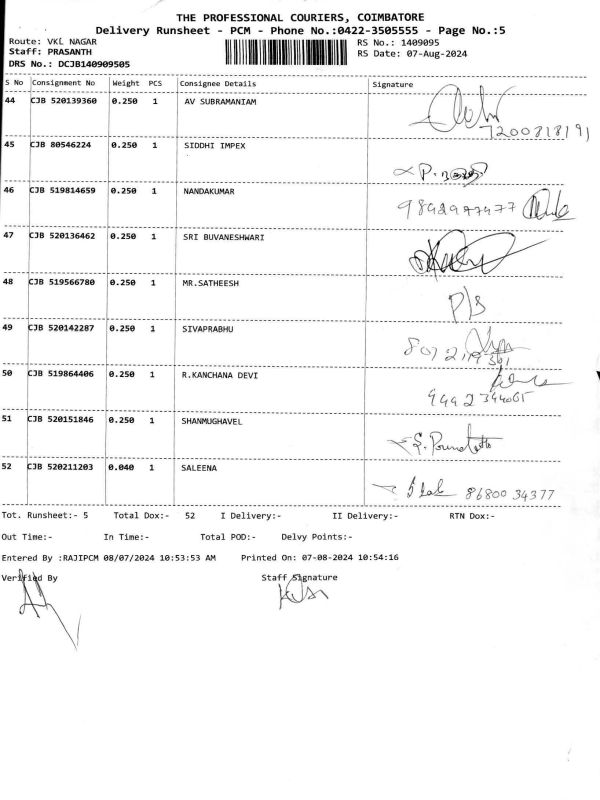 THE PROFESSIONAL COURIERS, COIMBATORE
Delivery Runsheet - PCM - Phone No.:0422-3505555 - Page No.:5
Route: VKL NAGAR RS No.: 1409095
Staff: PRASANTH RS Date: 07-Aug-2024
DRS No.: DCJB140909505
S No Consignment No Weight PCS Consignee Details Signature
44 CJB 520139360 0.250 1 AV SUBRAMANIAM
7200818191
45 CJB 80546224 0.250 1 SIDDHI IMPEX
46 CJB 519814659 0.250 1 NANDAKUMAR
47 CJB 520136462 0.250 1 SRI BUVANESHWARI
48 CJB 519566780 0.250 1 MR.SATHEESH
P/S
49 CJB 520142287 0.250 1 SIVAPRABHU
50 CJB 519864406 0.250 1 R.KANCHANA DEVI
51 CJB 520151846 0.250 1 SHANMUGHAVEL
52 CJB 520211203 0.040 1 SALEENA
86800 34377
Tot. Runsheet:- 5 Total Dox:- 52 I Delivery:- II Delivery:- RTN Dox:-
Out Time:- In Time:- Total POD:- Delvy Points:-
Entered By :RAJIPCM 08/07/2024 10:53:53 AM Printed On: 07-08-2024 10:54:16
Verified By Staff Signature